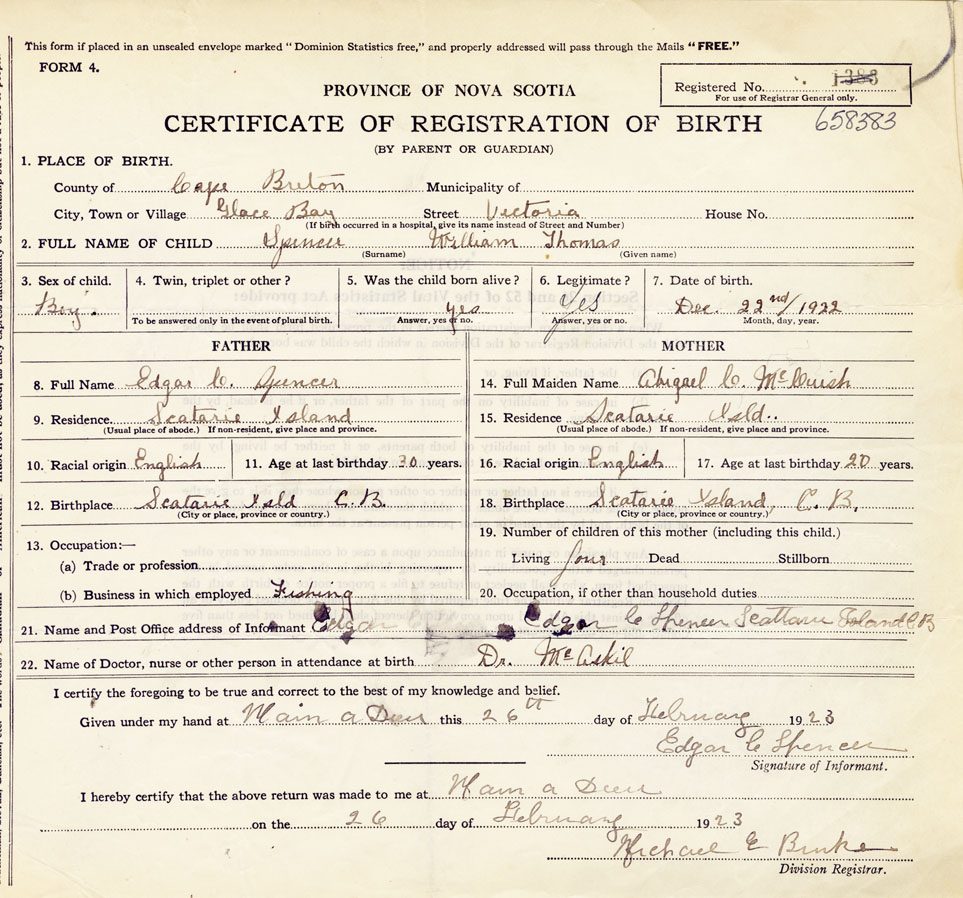 This form if placed in an unsealed envelope marked “Dominion Statistics free,” and properly addressed will pass through the Mails “FREE.”
FORM 4.
PROVINCE OF NOVA SCOTIA
Registered No. 1383
For use of Registrar General only.
CERTIFICATE OF REGISTRATION OF BIRTH
658383
(BY PARENT OR GUARDIAN)
1. PLACE OF BIRTH.
County of Cape Breton Municipality of
City, Town or Village Glace Bay Street Victoria House No.
(If birth occurred in a hospital, give its name instead of Street and Number)
2. FULL NAME OF CHILD Spencer William Thomas
(Surname) (Given name)
3. Sex of child. 4. Twin, triplet or other? 5. Was the child born alive? 6. Legitimate? 7. Date of birth.
Boy. yes Yes Dec. 22nd/1922
To be answered only in the event of plural birth. Answer, yes or no. Answer, yes or no. Month, day, year.
FATHER MOTHER
8. Full Name Edgar C. Spencer 14. Full Maiden Name Abigael C. McCuish
9. Residence Scatarie Island 15. Residence Scatarie Isld..
(Usual place of abode.) If non-resident, give place and province. (Usual place of abode.) If non-resident, give place and province.
10. Racial origin English 11. Age at last birthday 30 years. 16. Racial origin English 17. Age at last birthday 20 years.
12. Birthplace Scatarie Isld C.B. 18. Birthplace Scatarie Island, C.B.
(City or place, province or country.) (City or place, province or country.)
13. Occupation:— 19. Number of children of this mother (including this child.)
(a) Trade or profession Living four Dead Stillborn
(b) Business in which employed Fishing 20. Occupation, if other than household duties
21. Name and Post Office address of Informant Edgar Edgar C Spencer Island C B
22. Name of Doctor, nurse or other person in attendance at birth Dr. McAskil
I certify the foregoing to be true and correct to the best of my knowledge and belief.
Given under my hand at Main a Dieu this 26th day of February 1923
Edgar C Spencer
Signature of Informant.
I hereby certify that the above return was made to me at Main a Dieu
on the 26 day of February 1923
Michael E Burke
Division Registrar.